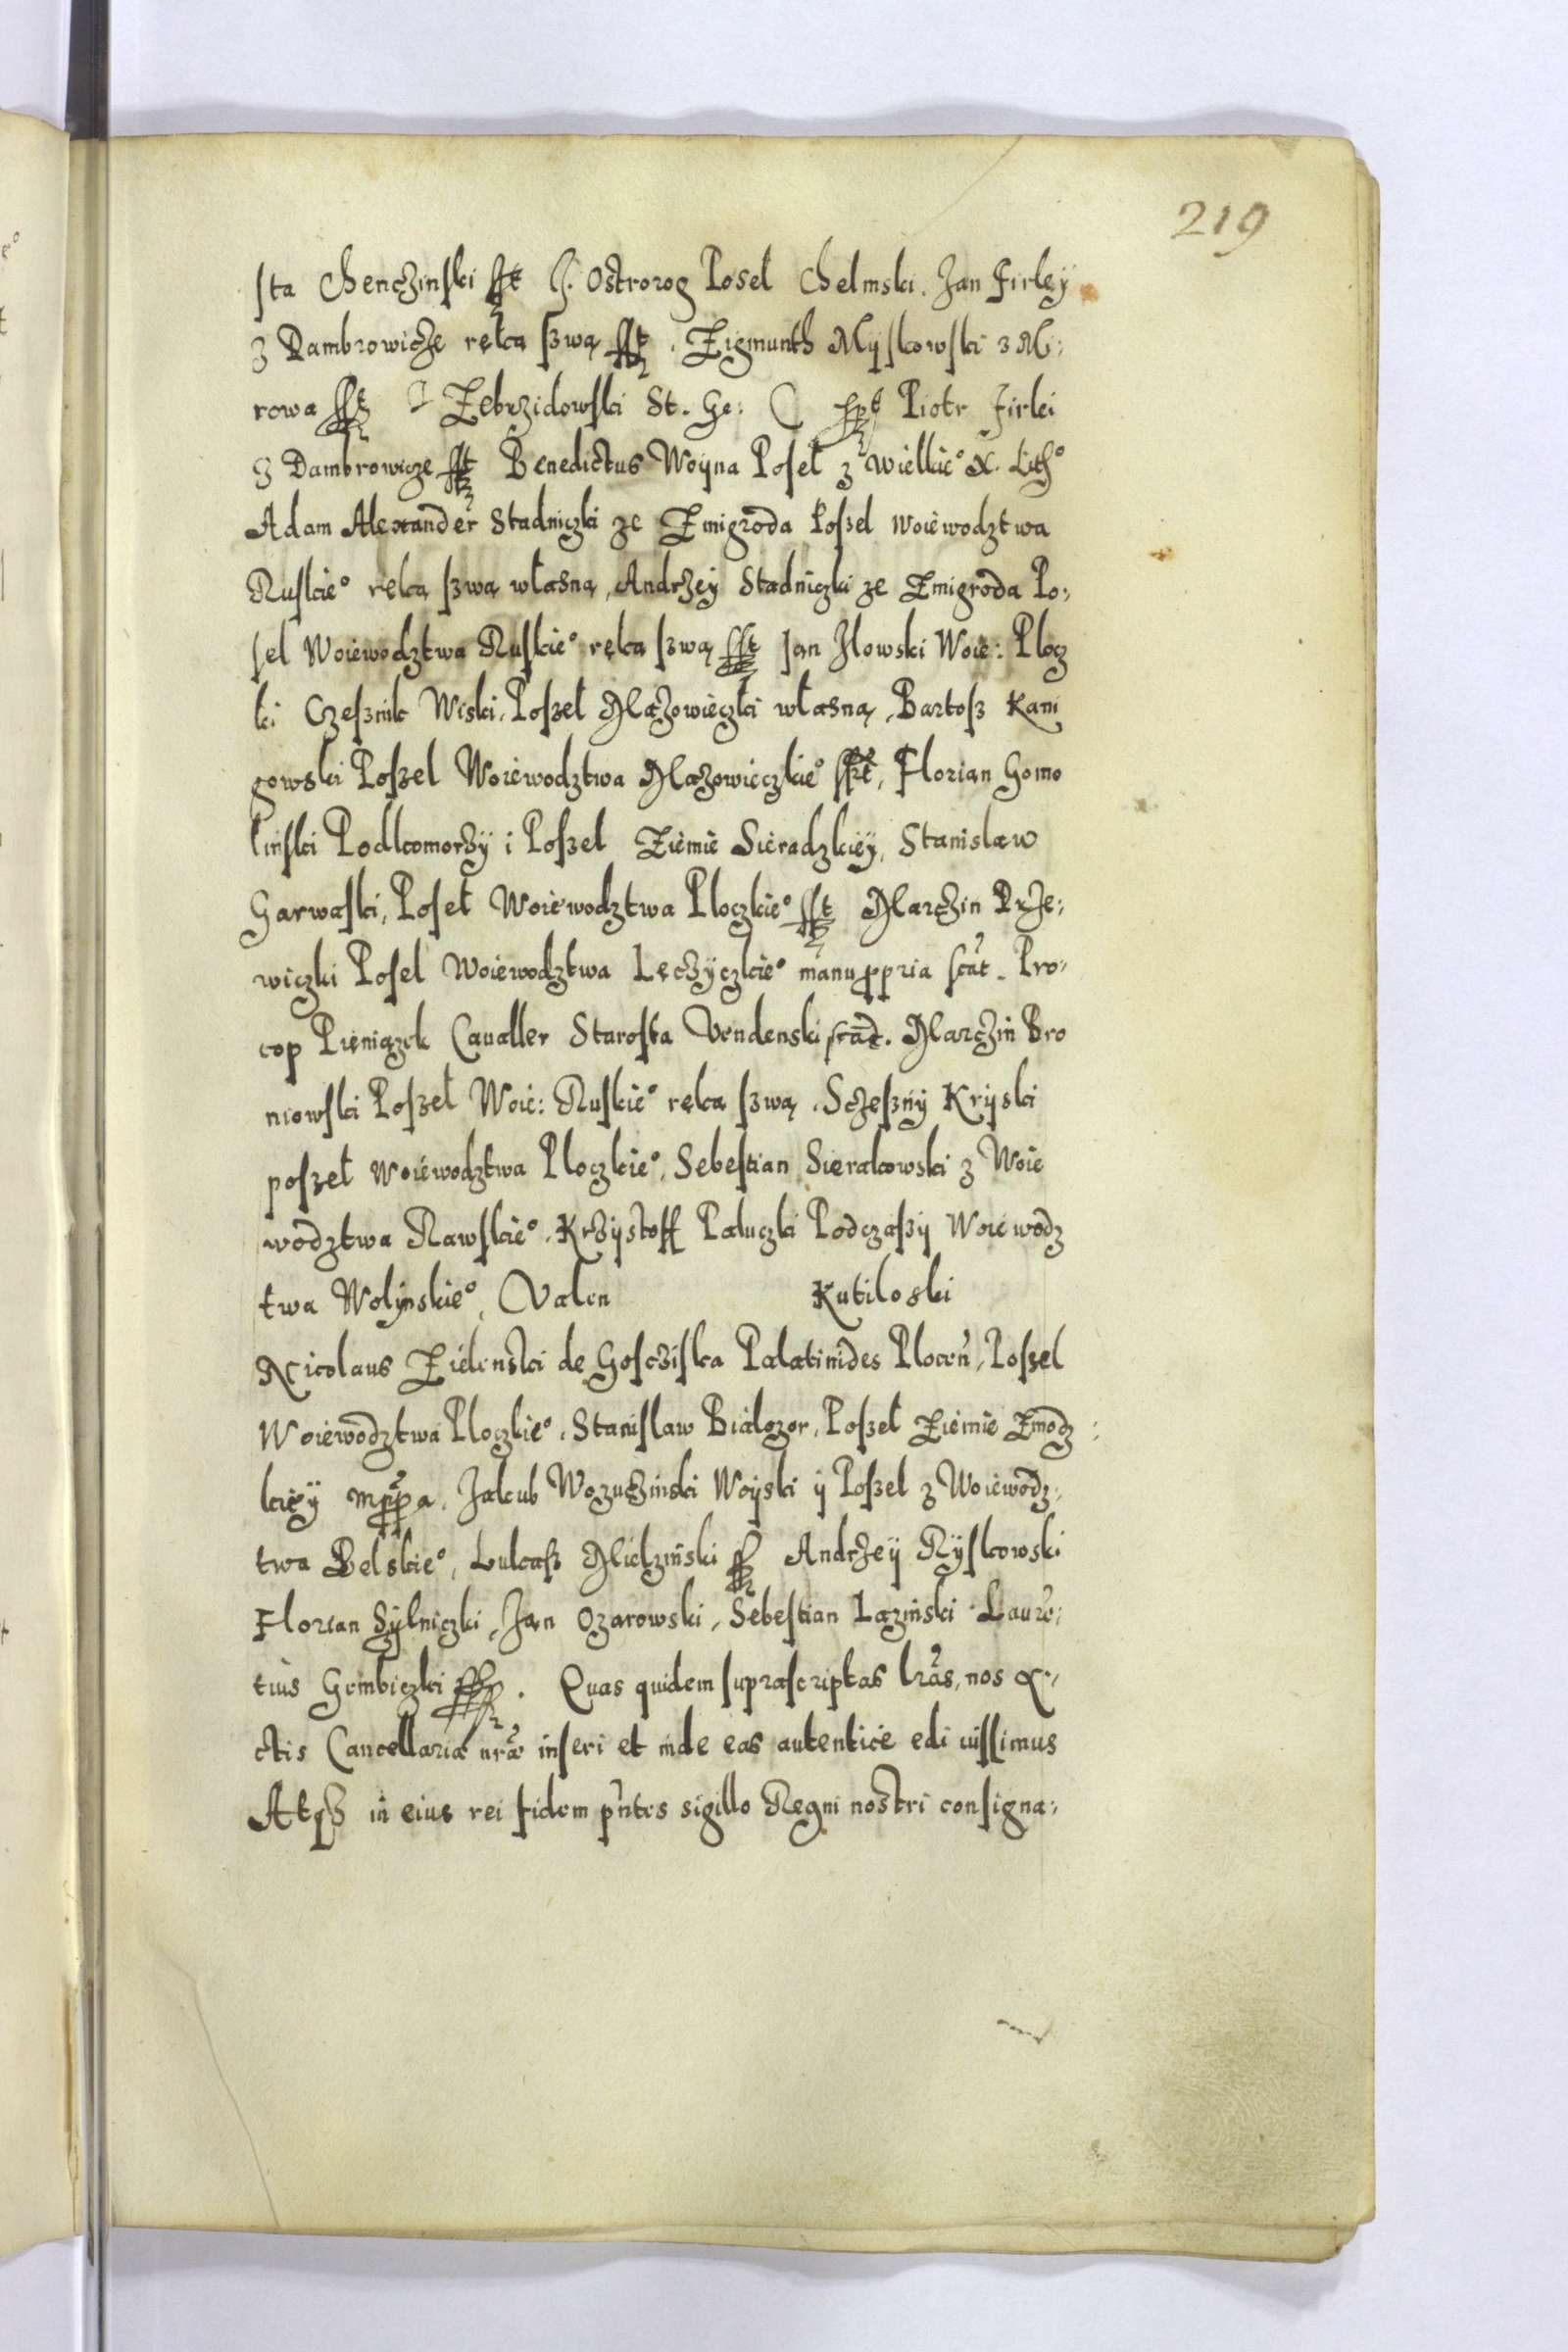 219
sta Chenczinski sst J. Ostrorog Posel Chelmski. Jan Firley
z Dambrowicze ręka szwą sst. Zigmunth Myskowski z Mi:
rowa sst Zebrzidowski St. Ge: C Piotr Firlei
z Dambrowicze sst Benedictus Woyna Posel z wielkie° X. Lith°
Adam Alexander Stadniczki ze Zmigroda Poszel woiewodztwa
Ruskie° ręką szwą własną, Andrzey Stadniczki ze Zmigroda Po:
sel Woiewodztwa Ruskie° ręka szwą sst Jan Ilowski Woie: Plocz
ki Czesznik Wiski, Poszeł Mazowieczki własną, Bartosz Kani
gowski Poszel Woiewodztwa Mazowieczkie° sst, Florian Gomo
linski Podkomorzy i Poszel Ziemie Sieradzkiey, Stanisław
Garwaski, Poseł Woiewodztwa Ploczkie° sst Marczin Prze:
wiczki Posel Woiewodztwa Lęczyczkie° manu ppria scat. Pro:
cop Pieniązek Caualler Starosta Vendenski scat. Marczin Bro
niowski Poszeł Woie: Ruskie° ręka szwą. Sczeszny Kryski
poszeł Woiewodztwa Ploczkie°, Sebestian Sierakowski z Woie
wodztwa Rawskie°. Krzystoff Paluczki Podczaszy Woiewodz
twa Wolynskie°, Valen Kutiloski
Nicolaus Zielenski de Gosczissca Palatinides Plocen, Poszel
Woiewodztwa Ploczkie°. Stanislaw Bialozor, Poszeł Ziemie Zmodz:
kiey mppa. Jakub Wozuczinski Woyski y Poszel z Woiewodz:
twa Belskie°, Lukasz Mielzinski Andrzey Ryskowski
Florian Sylniczki, Jan Ozarowski, Sebestian Lazinski Laure:
tius Gembiczki. Quas quidem suprascriptas lras, nos A:
ctis Cancellariæ nræ inseri et inde eas autentice edi iussimus
Atqz in eius rei fidem pntes sigillo Regni nostri consigna: